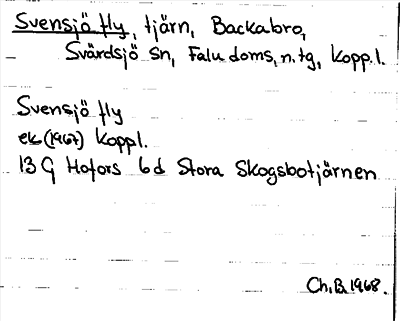 Svensjö fly, tjärn, Backabro,
Svärdsjö sn, Falu doms, n. tg, Kopp. l.
Svensjö fly
ek (1967) Koppl.
13 G Hofors 6d Stora Skogsbotjärnen
Ch. B. 1968.